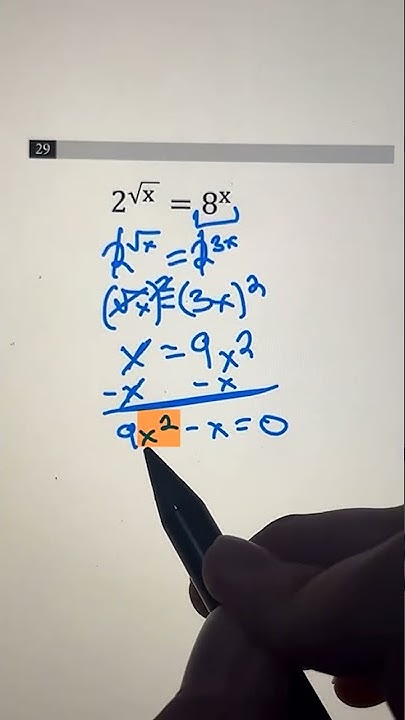 29
2^√x = 8^x
2^√x = 2^3x
(√x)^2 = (3x)^2
x = 9x^2
-x -x
9x^2 - x = 0